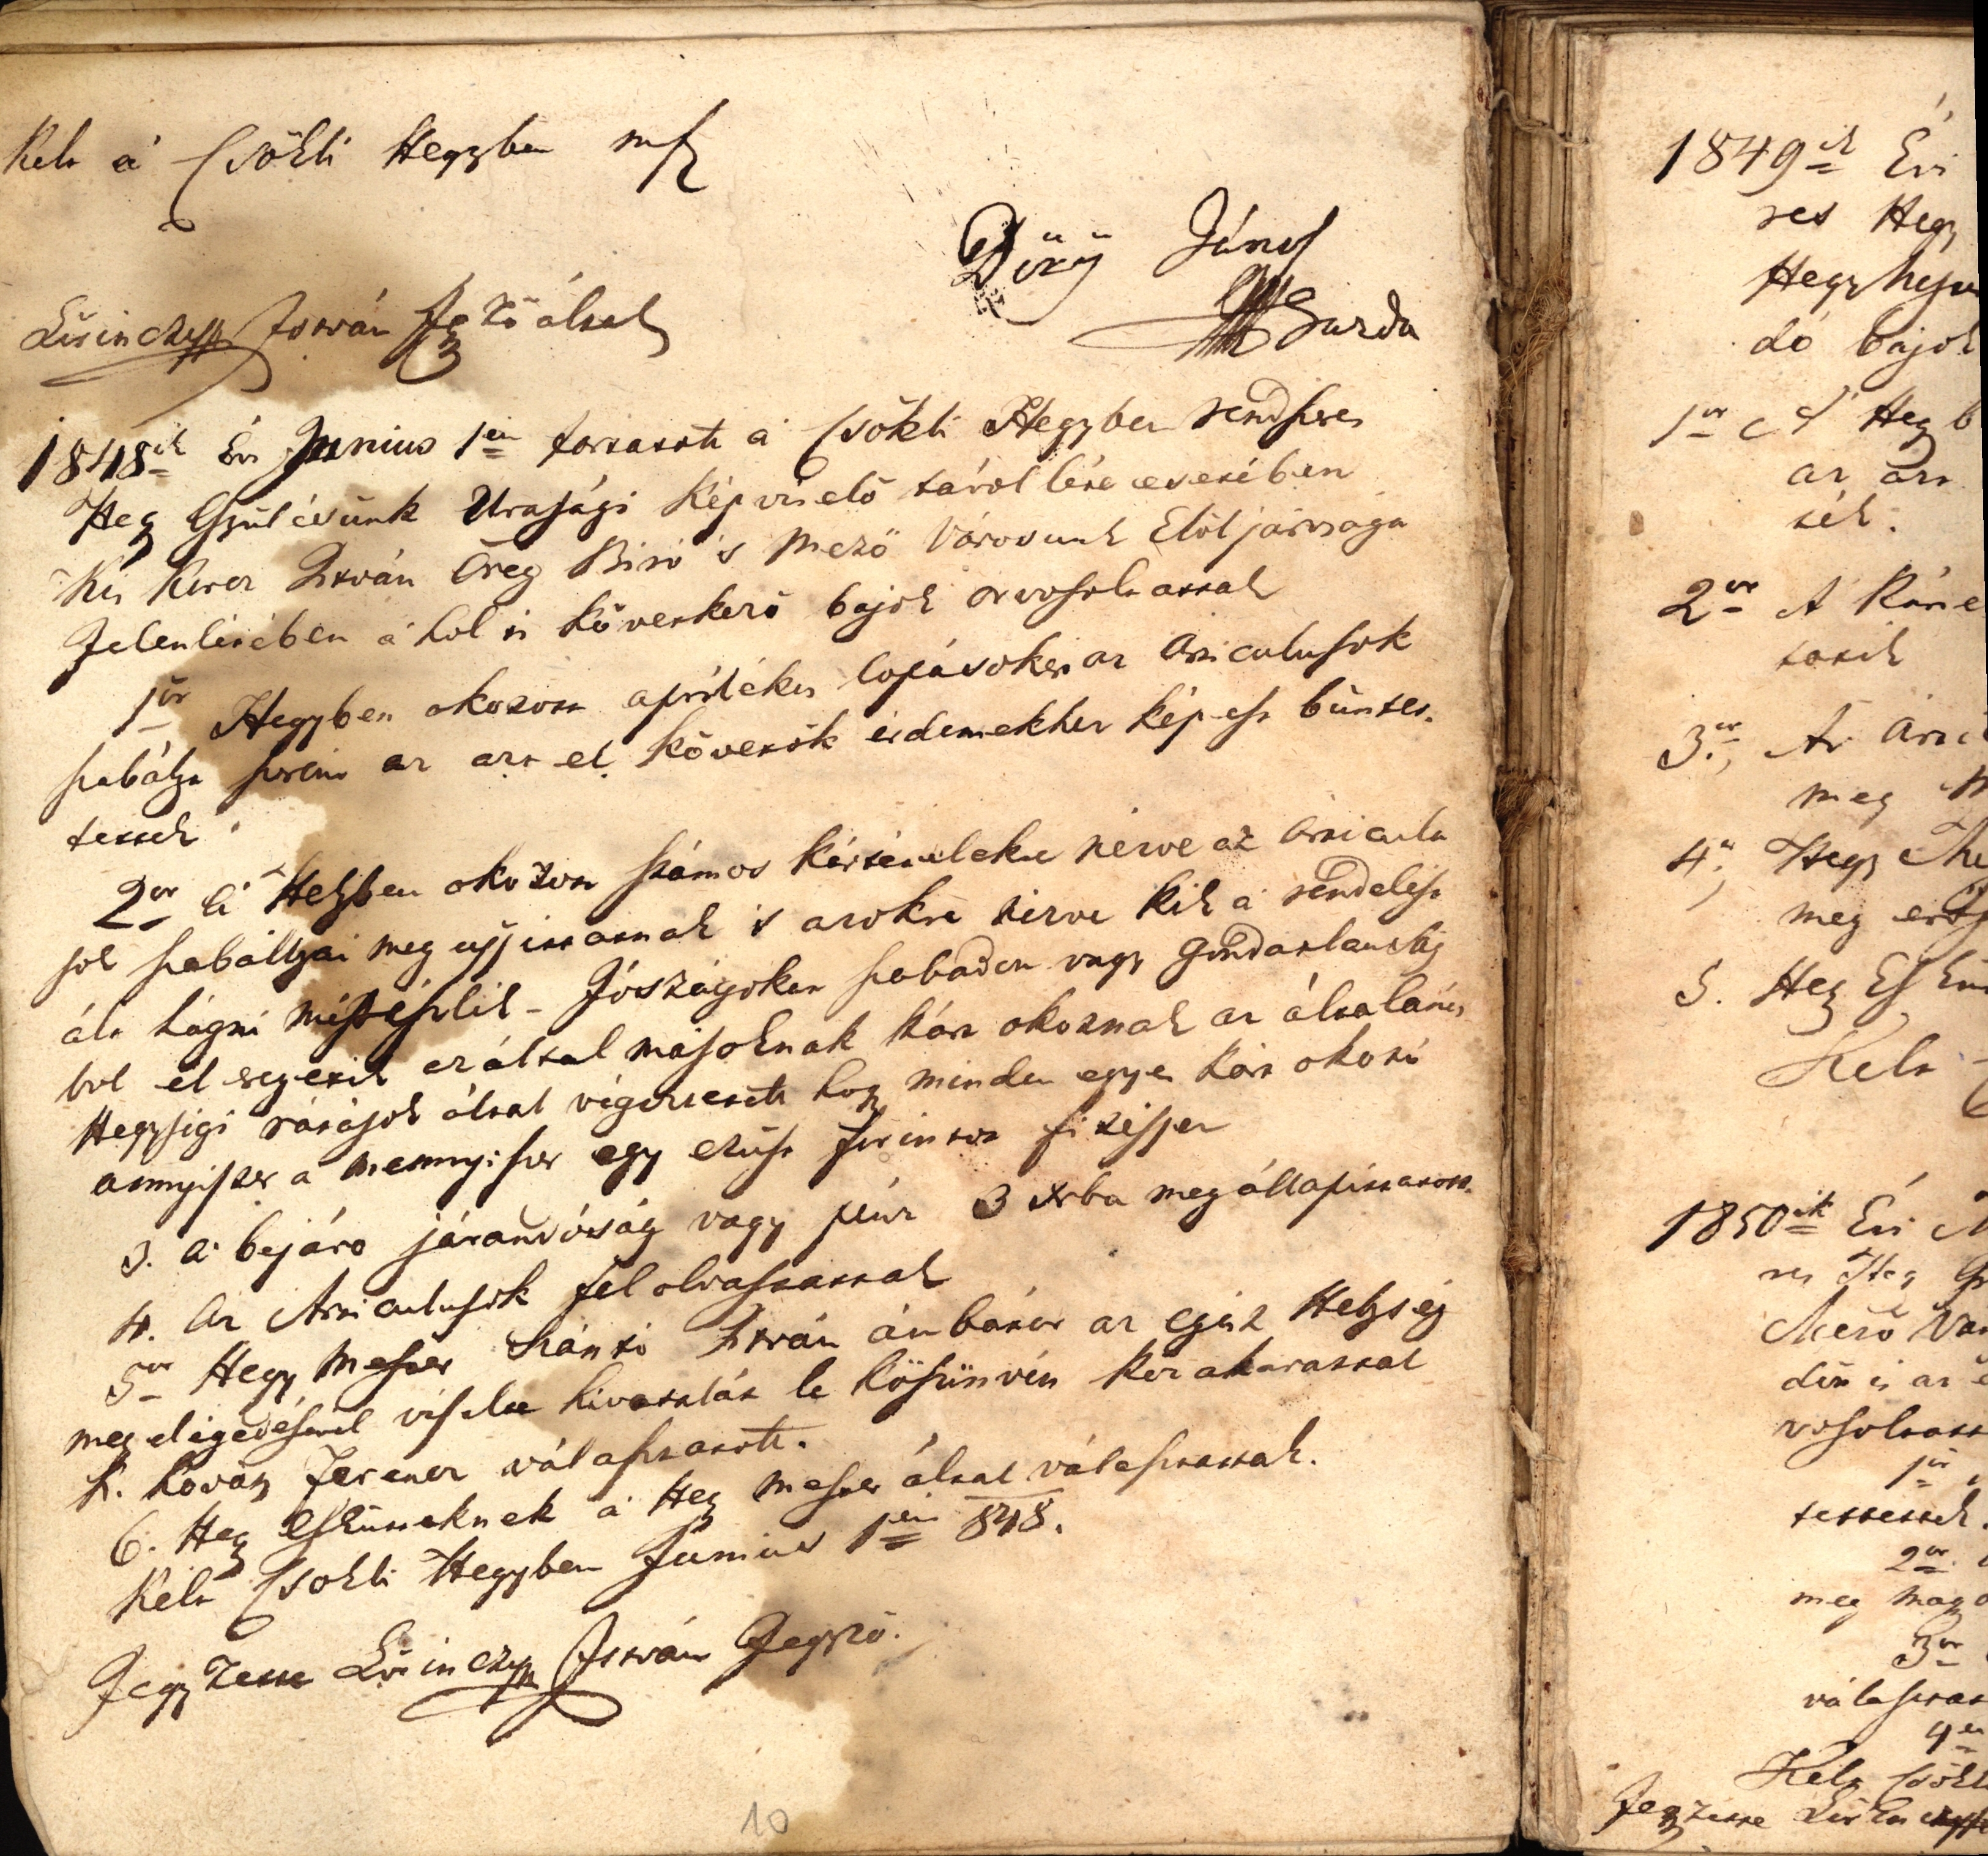 Kelt a' Csökli Hegyben mfk
Düzü János
Gazda
Lőrinczy István Jegző által
1848ik Évi Junius 1én tartatott a' Csökli Hegyben rendszres
Hegy Gyülésünk Urasági Képviselő távol léte esetében
Kis István Öreg Biró 's Mező Városunk Elöljárosága
Jelenlétében a' hol is következő bajok orvosoltattak
1ör Hegyben okozott aprólékos lopásokért az Articulusok
szabálya szerint az azt el követők érdemekhez képest büntet-
tessek
2or A' Helyben okozott számos kártételekre nézve az Articulu
sok szabállyai meg ujjittattnak 's azokra nézve kik a' rendelést
ált hágni mérészlik - Jószágokat szabadon vagy gondatlanság
bol el eregetik ez által másoknak kárt okoznak az általános
Hegységi rátájok által végeztetett hogy minden egyes kár okozó
annyiszor a' mennyiszer egy ezüst forintot fizessen
3. A' bejáro járandóság vagy pénz 3 xrba megállapittatott.
4. Az Articulusok fel olvastattak
5ör Hegy Mester Szántó István ámbátor az egész Helység
meg elégedésével viselte hivatalát le köszönvén közakarattal
K. Kováts Ferencz választatott.
6. Hegy Esküteknek a' Hegy Mester által választattak.
Kelt Csökli Hegyben Junius 1én 848.
Jegyzette Lőrinczy István Jegyző.
10
1849ik Évi
res Hegy
Hegyhejen
dó bajok
1ör A' Hegyb
az árt
ték.
2or A' Káne
tatik
3or, Az Arti
meg
4r, Hegy Me
meg
5. Hegy Eskü
Kelt
1850ik Évi
res Hegy Gy
Mező Vár
dön is az
vosoltatt
1ör
tettessek.
2or
meg mag
3or
választat
4en
Kelt Csökl
Jegyzette Lőrinczy